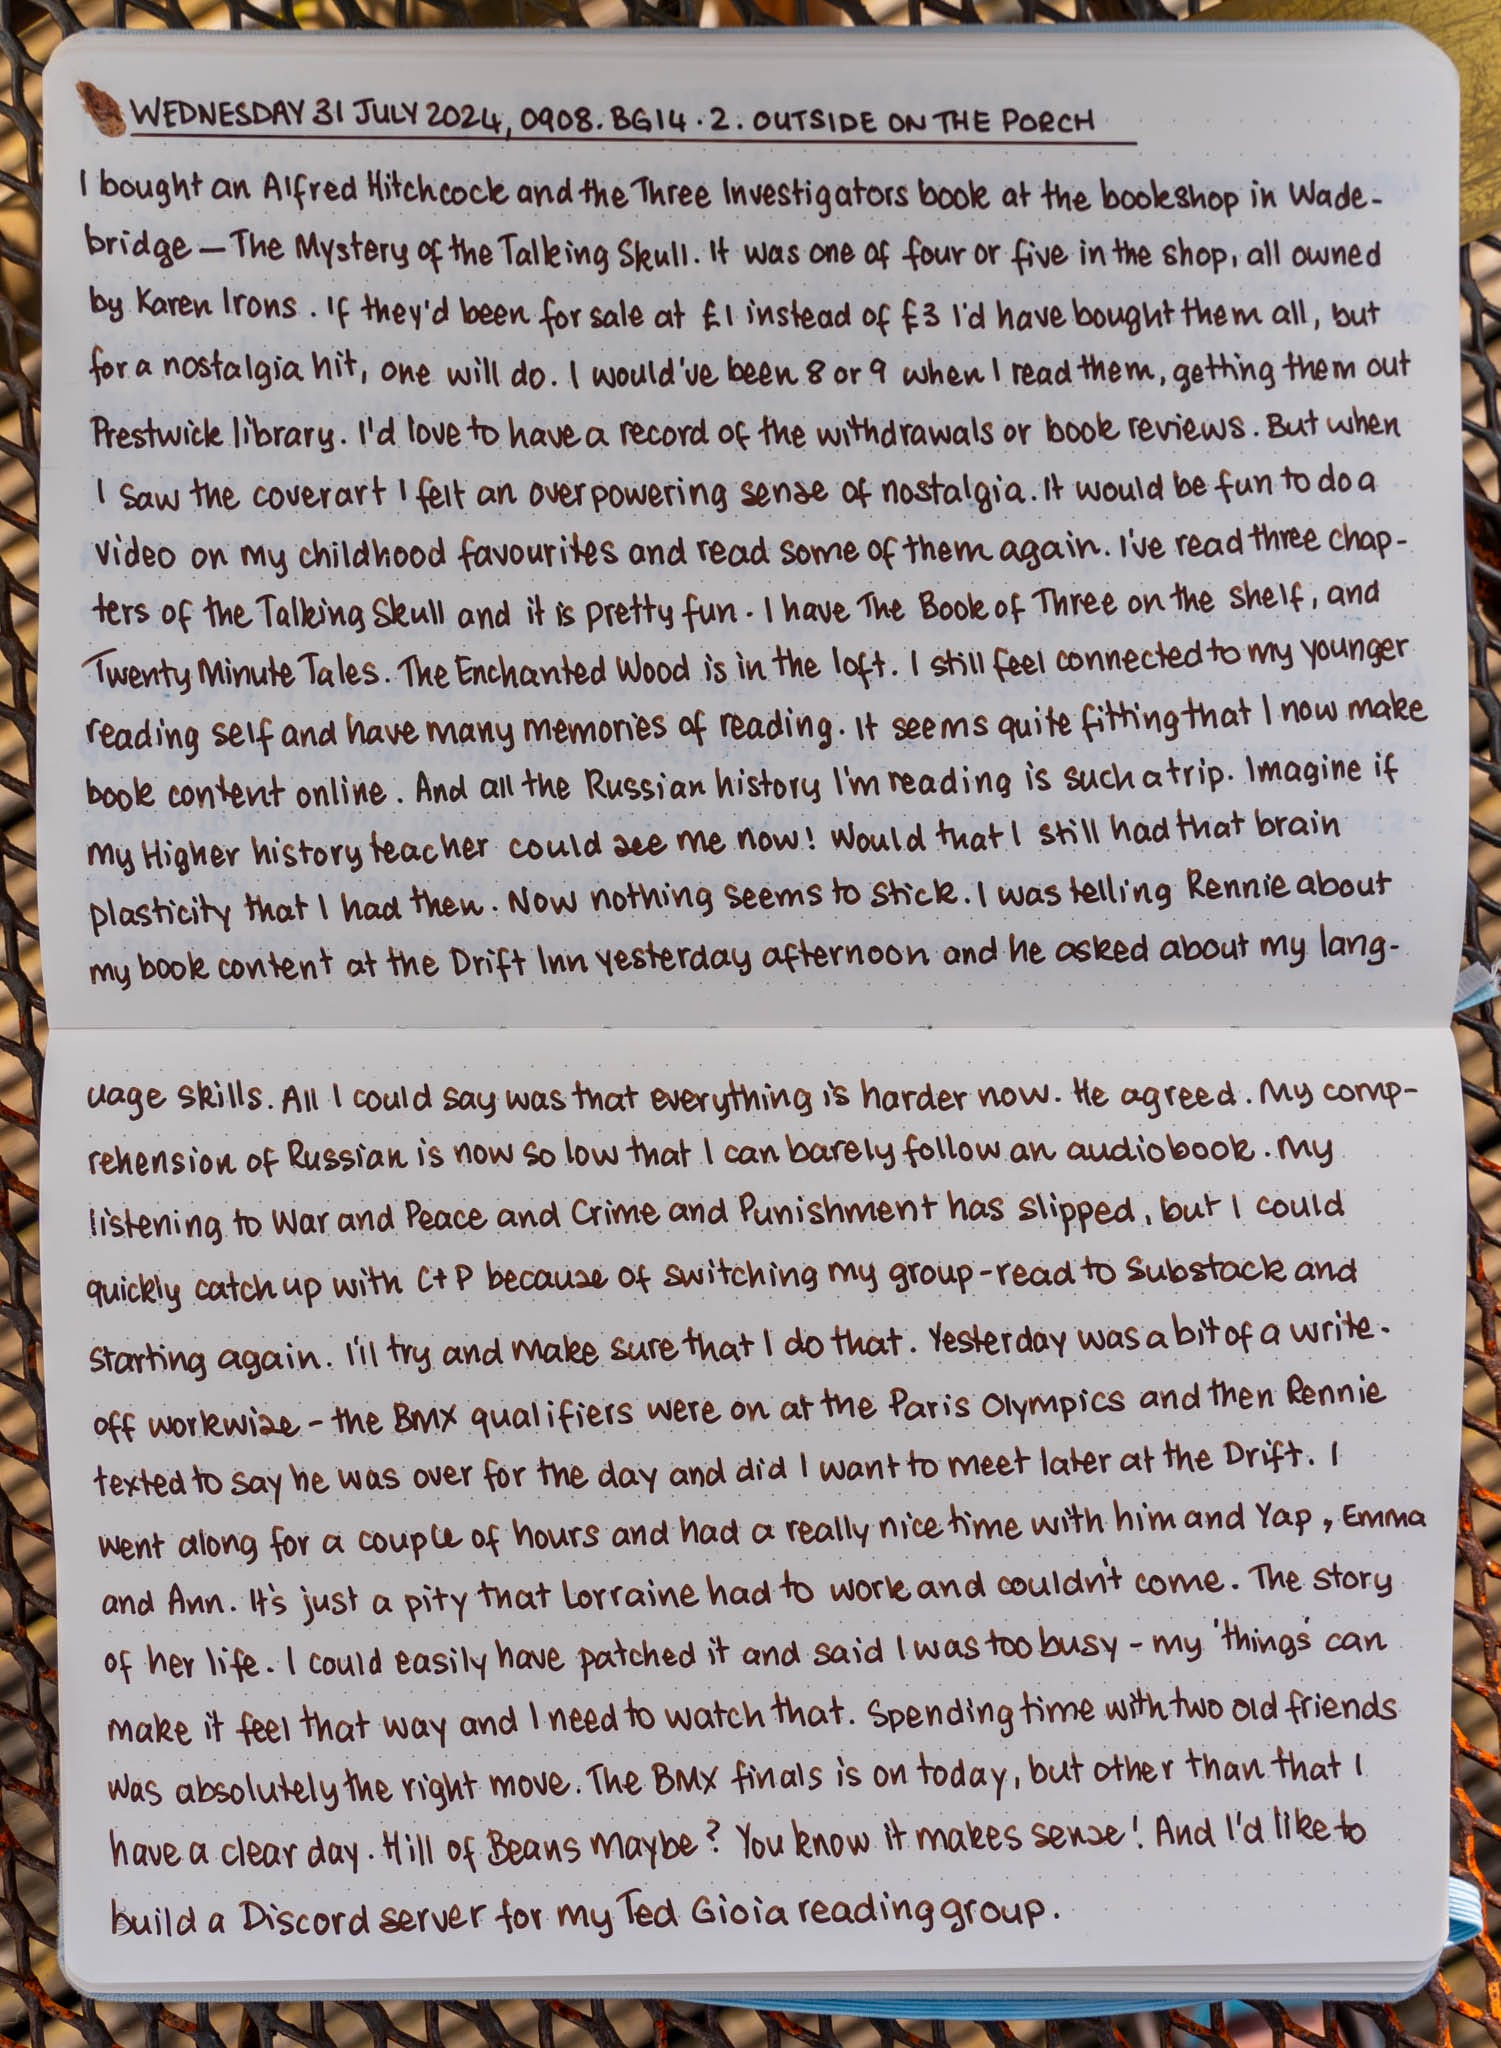 WEDNESDAY 31 JULY 2024, 0908. BG14 · 2. OUTSIDE ON THE PORCH
I bought an Alfred Hitchcock and the Three Investigators book at the bookshop in Wade-
bridge — The Mystery of the Talking Skull. It was one of four or five in the shop, all owned
by Karen Irons. If they'd been for sale at £1 instead of £3 I'd have bought them all, but
for a nostalgia hit, one will do. I would've been 8 or 9 when I read them, getting them out
Prestwick library. I'd love to have a record of the withdrawals or book reviews. But when
I saw the coverart I felt an overpowering sense of nostalgia. It would be fun to do a
video on my childhood favourites and read some of them again. I've read three chap-
ters of the Talking Skull and it is pretty fun. I have The Book of Three on the shelf, and
Twenty Minute Tales. The Enchanted Wood is in the loft. I still feel connected to my younger
reading self and have many memories of reading. It seems quite fitting that I now make
book content online. And all the Russian history I'm reading is such a trip. Imagine if
my Higher history teacher could see me now! Would that I still had that brain
plasticity that I had then. Now nothing seems to stick. I was telling Rennie about
my book content at the Drift Inn yesterday afternoon and he asked about my lang-
uage skills. All I could say was that everything is harder now. He agreed. My comp-
rehension of Russian is now so low that I can barely follow an audiobook. My
listening to War and Peace and Crime and Punishment has slipped, but I could
quickly catch up with C+P because of switching my group-read to Substack and
starting again. I'll try and make sure that I do that. Yesterday was a bit of a write-
off workwise – the BMX qualifiers were on at the Paris Olympics and then Rennie
texted to say he was over for the day and did I want to meet later at the Drift. I
went along for a couple of hours and had a really nice time with him and Yap, Emma
and Ann. It's just a pity that Lorraine had to work and couldn't come. The story
of her life. I could easily have patched it and said I was too busy – my 'things' can
make it feel that way and I need to watch that. Spending time with two old friends
was absolutely the right move. The BMX finals is on today, but other than that I
have a clear day. Hill of Beans maybe? You know it makes sense! And I'd like to
build a Discord server for my Ted Gioia reading group.